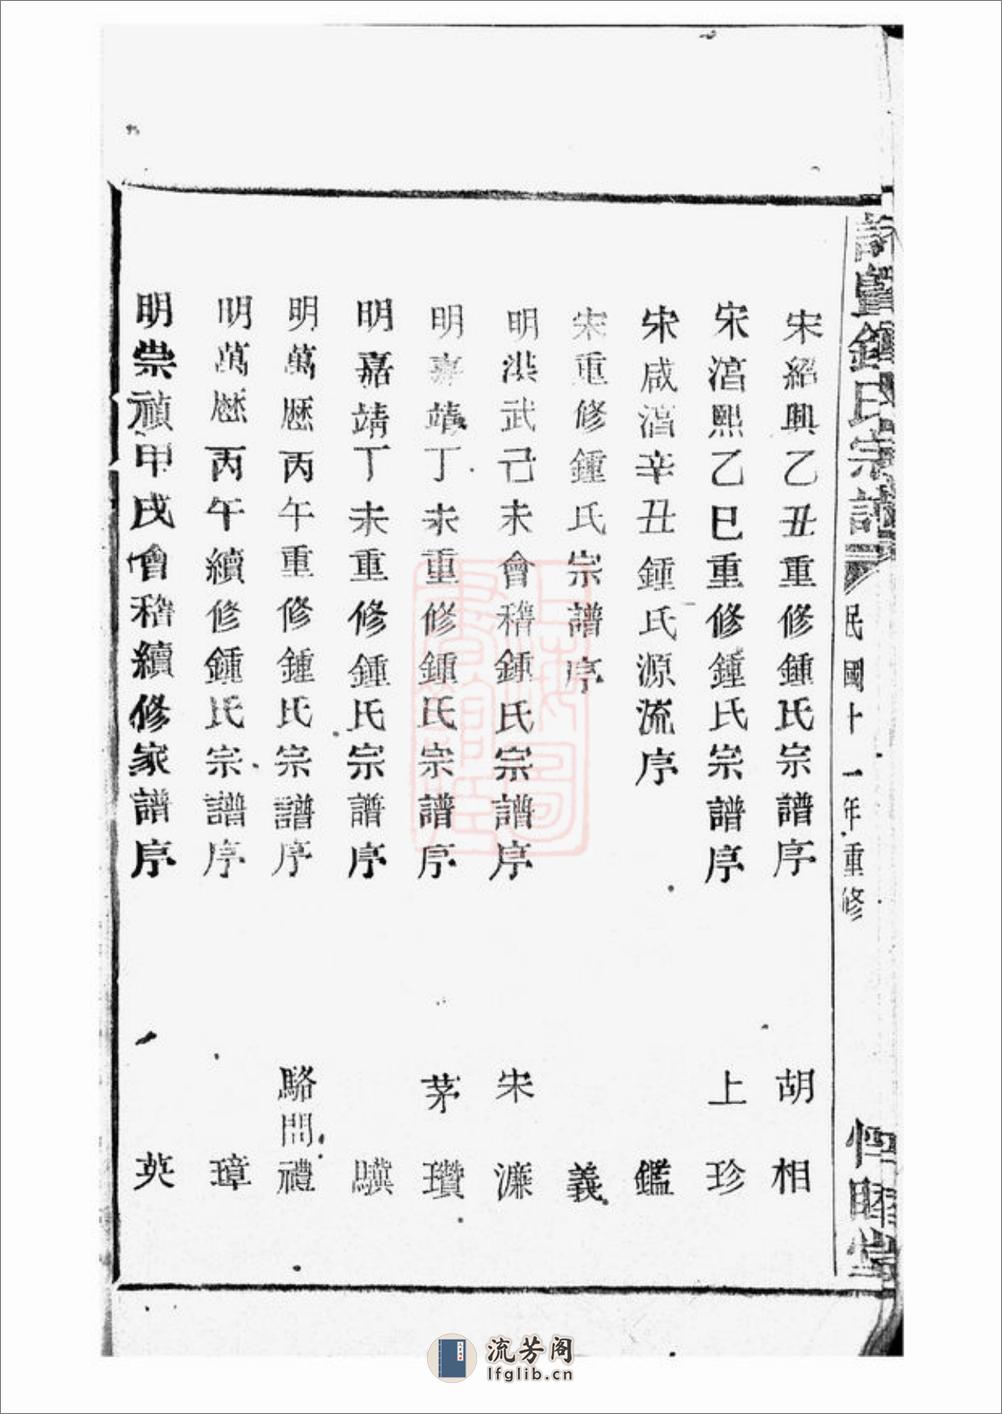 諸暨鍾氏宗譜 民國十一年重修 惇睦堂
宋紹興乙丑重修鍾氏宗譜序 胡相
宋淳熙乙巳重修鍾氏宗譜序 上珍
宋咸淳辛丑鍾氏源流序 鑑
宋重修鍾氏宗譜序 義
明洪武己未會稽鍾氏宗譜序 宋濂
明嘉靖丁未重修鍾氏宗譜序 茅瓚
明嘉靖丁未重修鍾氏宗譜序 驥
明萬歷丙午重修鍾氏宗譜序 駱問禮
明萬歷丙午續修鍾氏宗譜序 璋
明崇禎甲戌會稽續修家譜序 英
流芳阁
lfglib.cn